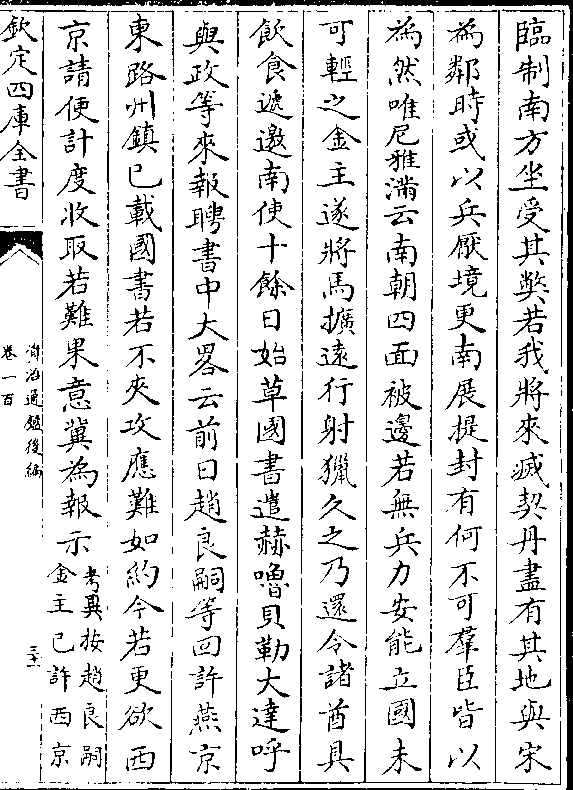 臨制南方坐受其獘若我將來滅契丹盡有其地與宋
為鄰時或以兵厭境更南展提封有何不可羣臣皆以
為然唯尼雅滿云南朝四面被邊若無兵力安能立國未
可輕之金主遂將馬擴遠行射獵久之乃還令諸酋具
飲食遞邀南使十餘日始草國書遣赫嚕貝勒大達呼
與政等來報聘書中大畧云前日趙良嗣等回許燕京
東路州鎮已載國書若不夾攻應難如約今若更欲西
京請便計度收取若難果意冀為報示考異按趙良嗣
金主已許西京
欽定四庫全書
資治通鑑後編
卷一百
三十一